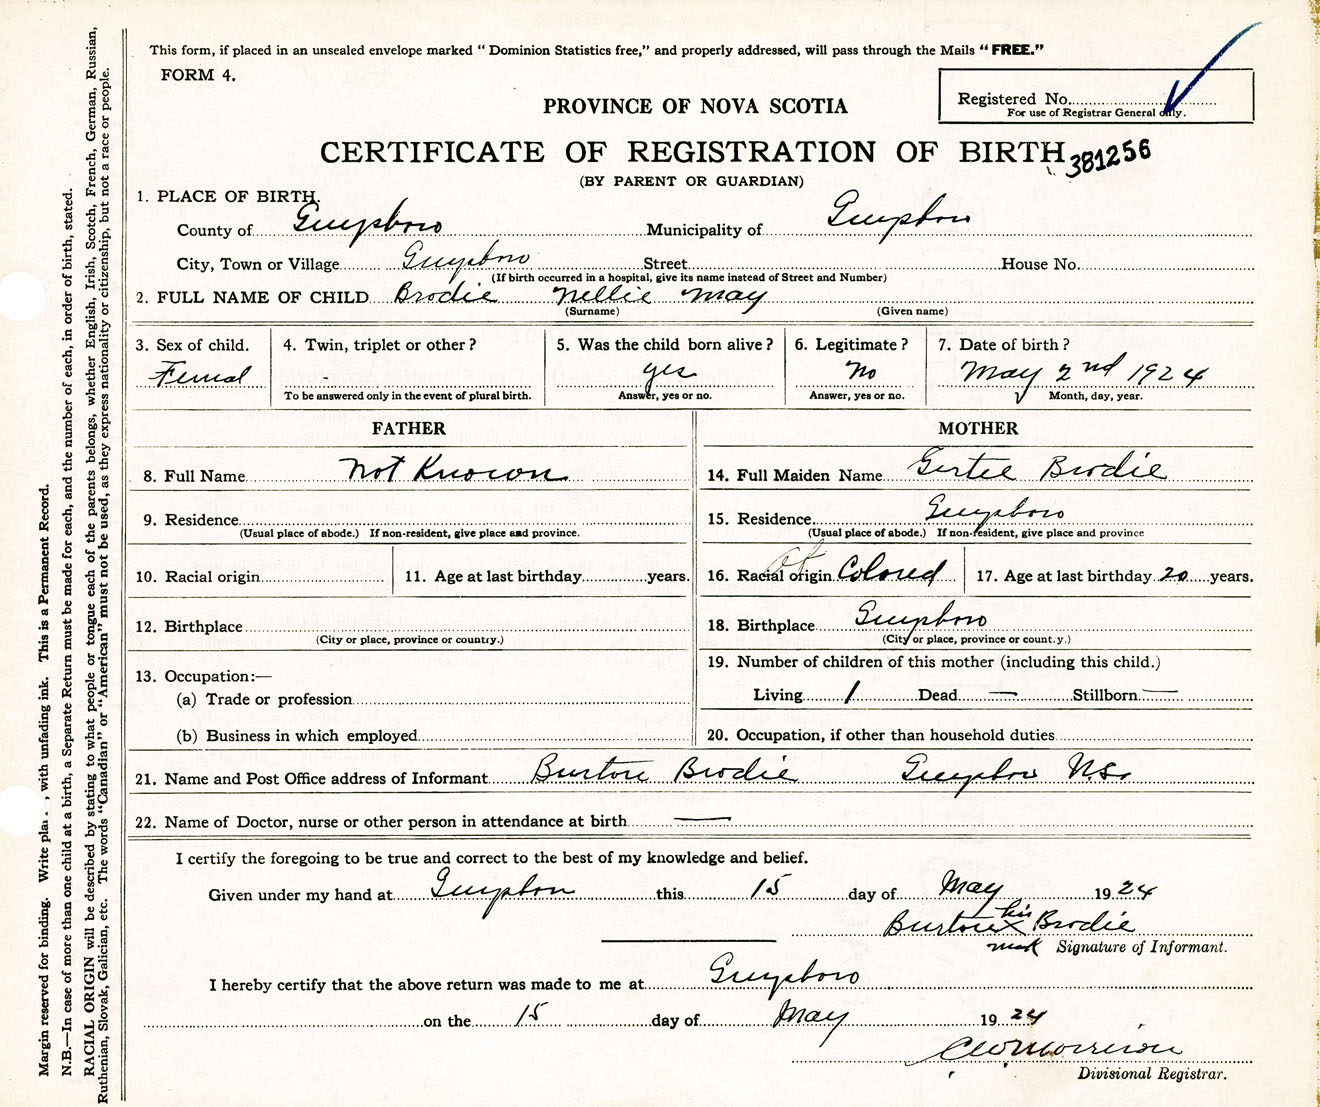 This form, if placed in an unsealed envelope marked "Dominion Statistics free," and properly addressed, will pass through the Mails "FREE."
FORM 4.
Registered No.
For use of Registrar General only.
PROVINCE OF NOVA SCOTIA
CERTIFICATE OF REGISTRATION OF BIRTH 381256
(BY PARENT OR GUARDIAN)
1. PLACE OF BIRTH.
County of Guysboro Municipality of Guysboro
City, Town or Village Guysboro Street House No.
(If birth occurred in a hospital, give its name instead of Street and Number)
2. FULL NAME OF CHILD Brodie Nellie May
(Surname) (Given name)
3. Sex of child. 4. Twin, triplet or other? 5. Was the child born alive? 6. Legitimate? 7. Date of birth?
Femal - yes No May 2nd 1924
To be answered only in the event of plural birth. Answer, yes or no. Answer, yes or no. Month, day, year.
FATHER MOTHER
8. Full Name Not Known 14. Full Maiden Name Gertee Brodie
9. Residence 15. Residence Guysboro
(Usual place of abode.) If non-resident, give place and province. (Usual place of abode.) If non-resident, give place and province
10. Racial origin 11. Age at last birthday years. 16. Racial origin Colored 17. Age at last birthday 20 years.
12. Birthplace 18. Birthplace Guysboro
(City or place, province or country.) (City or place, province or count.y.)
19. Number of children of this mother (including this child.)
13. Occupation:—
(a) Trade or profession Living 1 Dead — Stillborn —
(b) Business in which employed 20. Occupation, if other than household duties
21. Name and Post Office address of Informant Burton Brodie Guysboro N.S.
22. Name of Doctor, nurse or other person in attendance at birth —
I certify the foregoing to be true and correct to the best of my knowledge and belief.
Given under my hand at Guysboro this 15 day of May 1924
Burton his X Brodie
mark Signature of Informant.
I hereby certify that the above return was made to me at Guysboro
on the 15 day of May 1924
Divisional Registrar.
Margin reserved for binding. Write , with unfading ink. This is a Permanent Record.
N.B.—In case of more than one child at a birth, a Separate Return must be made for each, and the number of each, in order of birth, stated.
RACIAL ORIGIN will be described by stating to what people or tongue each of the parents belongs, whether English, Irish, Scotch, French, German, Russian,
Ruthenian, Slovak, Galician, etc. The words "Canadian" or "American" must not be used, as they express nationality or citizenship, but not a race or people.